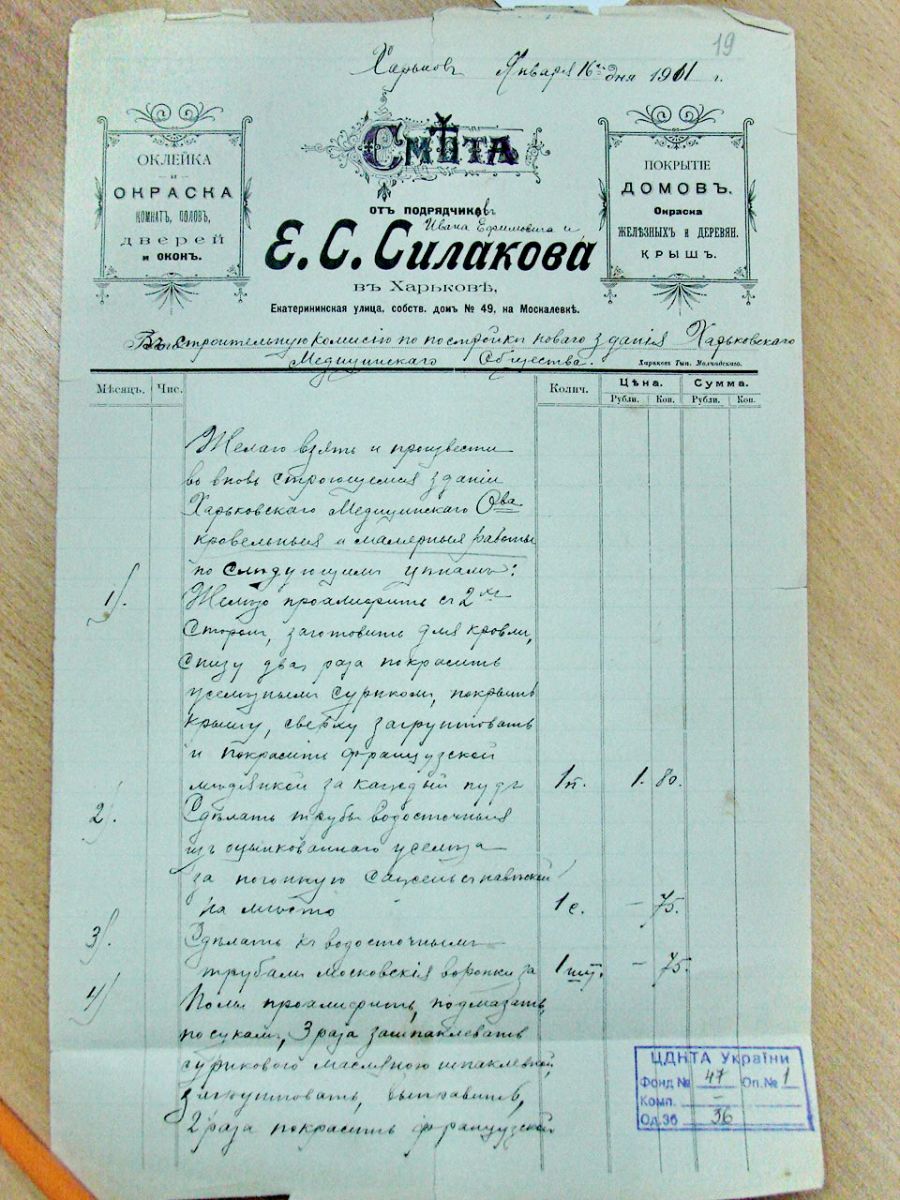 19
Харьковъ Января 16го дня 1911 г.
ОКЛЕЙКА
и
ОКРАСКА
КОМНАТЪ, ПОЛОВЪ,
ДВЕРЕЙ
и ОКОНЪ.
СМѢТА
ОТЪ ПОДРЯДЧИКОВЪ
Ивана Ефимовича и
Е. С. Силакова
въ Харьковѣ,
Екатерининская улица, собств. домъ № 49, на Москалевкѣ.
ПОКРЫТІЕ
ДОМОВЪ.
Окраска
ЖЕЛѢЗНЫХЪ и ДЕРЕВЯН.
КРЫШЪ.
Въ строительную комисію по постройки новаго зданія Харьковскаго
Медицинскаго Общества.
Харьковъ Тип. Молчадскаго.
Мѣсяцъ. Чис. Колич. Цѣна. Сумма.
Рубли. Коп. Рубли. Коп.
Желаю взять и произвести
во вновь строющемся зданіи
Харьковскаго Медицинскаго О-ва
кровельныя и малярныя работы
по слѣдующимъ цѣнамъ:
1). Желѣзо проалифить съ 2хъ
сторон, заготовить для кровли,
снизу два раза покрасить
желѣзнымъ сурикомъ, покрыть
крышу, сверху загрунтовать
и покрасить французской
мѣдянкой за каждый пудъ 1 п. 1. 80.
2). Сдѣлать трубы водосточныя
изъ оцынкованнаго желѣза
за погонную сажень съ навѣской
на место 1 с. – 75.
3). Сдѣлать къ водосточнымъ
трубамъ московскія воронки за 1 шт. – 75.
4) Полы проалифить, подмазать,
по сукамъ, 3 раза зашпаклевать
суриковой масляной шпаклевкой,
загрунтовать, выправить,
2 раза покрасить французской
ЦДНТА України
Фонд № 47 Оп. № 1
Комп. –
Од.зб 36